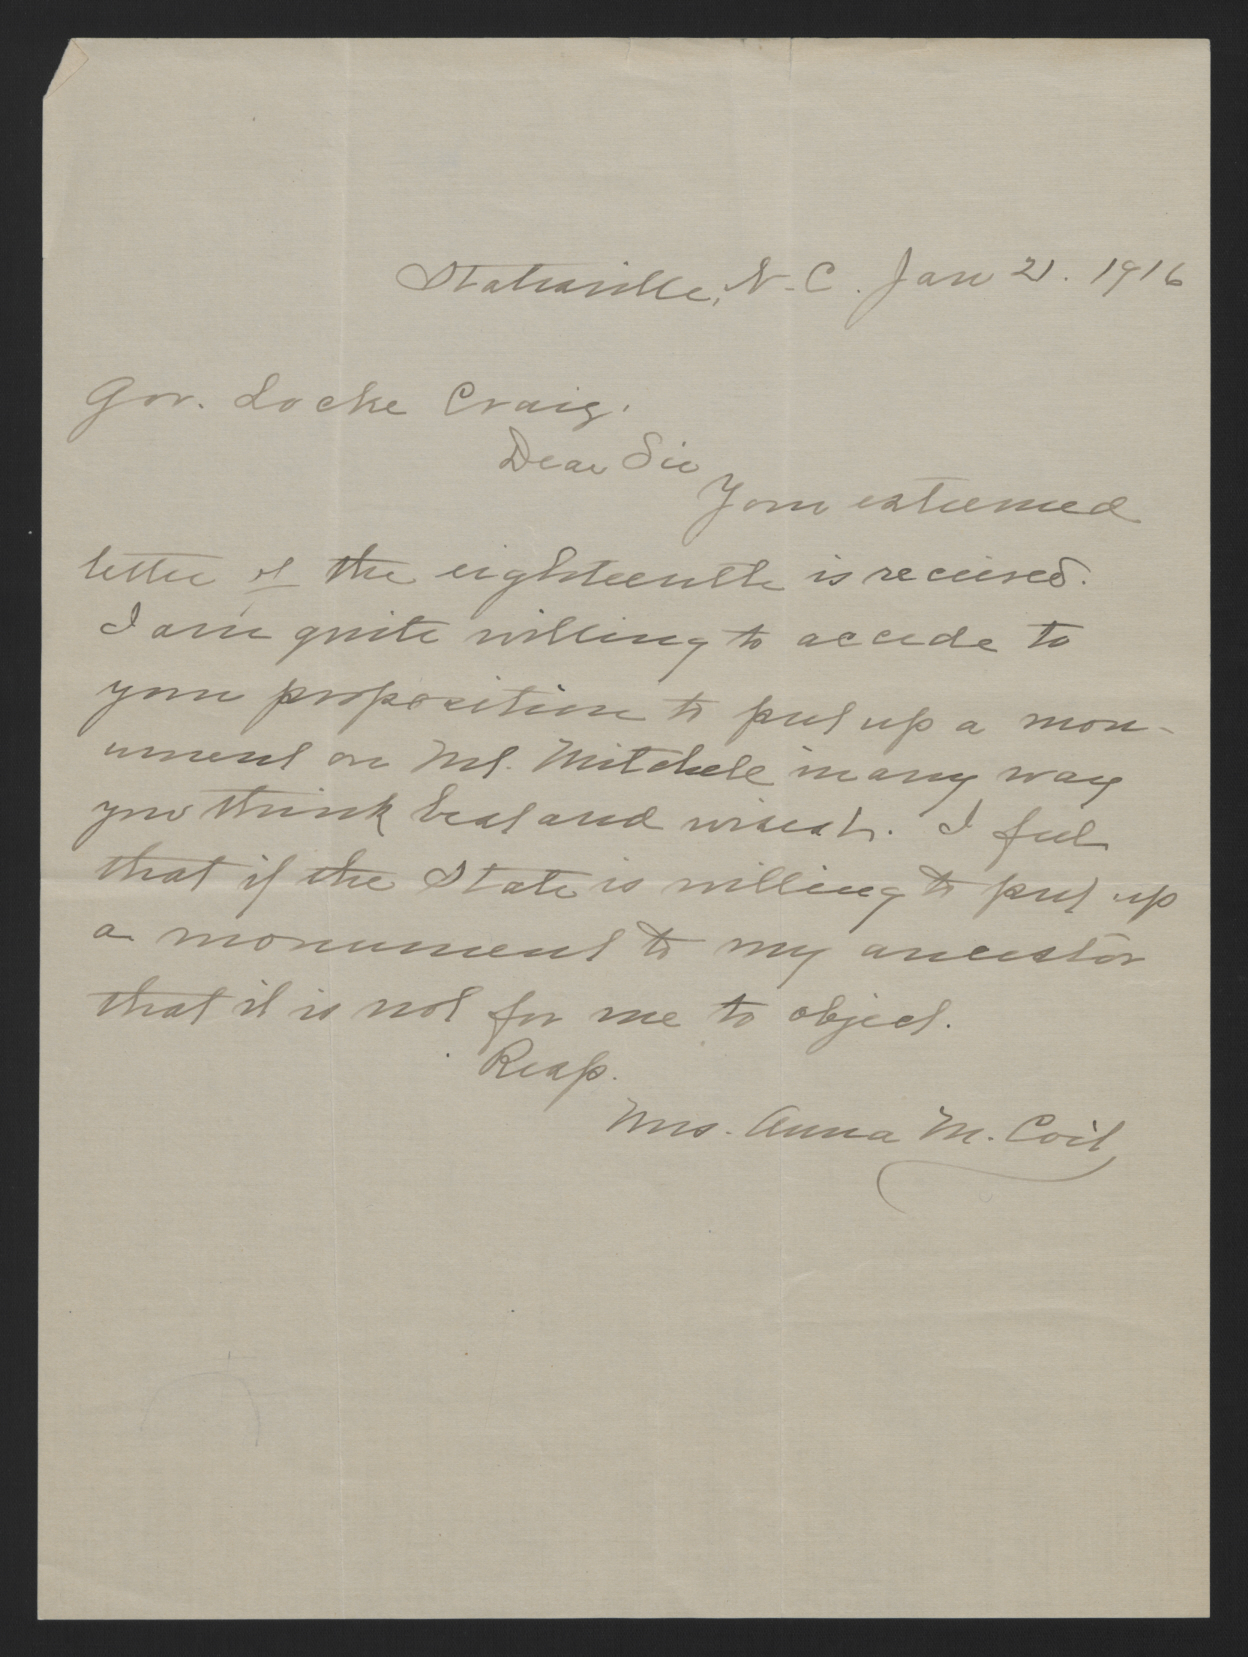 Statesville, N. C. Jan 21. 1916
Gov. Locke Craig.
Dear Sir
Your esteemed
letter of the eighteenth is received.
I am quite willing to accede to
your proposition to put up a mon-
ument on Mt. Mitchell in any way
you think best and wisest. I feel
that if the State is willing to put up
a monument to my ancestor
that it is not for me to object.
Resp.
Mrs. Anna M. Coit